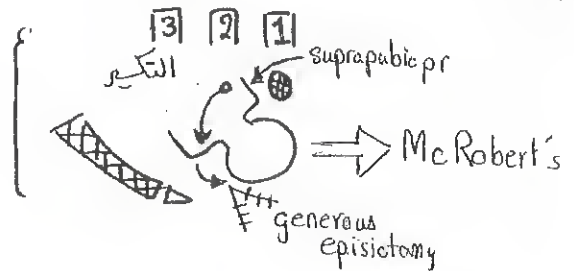 3 2 1
التكسير
suprapubic pr
McRobert's
generous
episiotomy